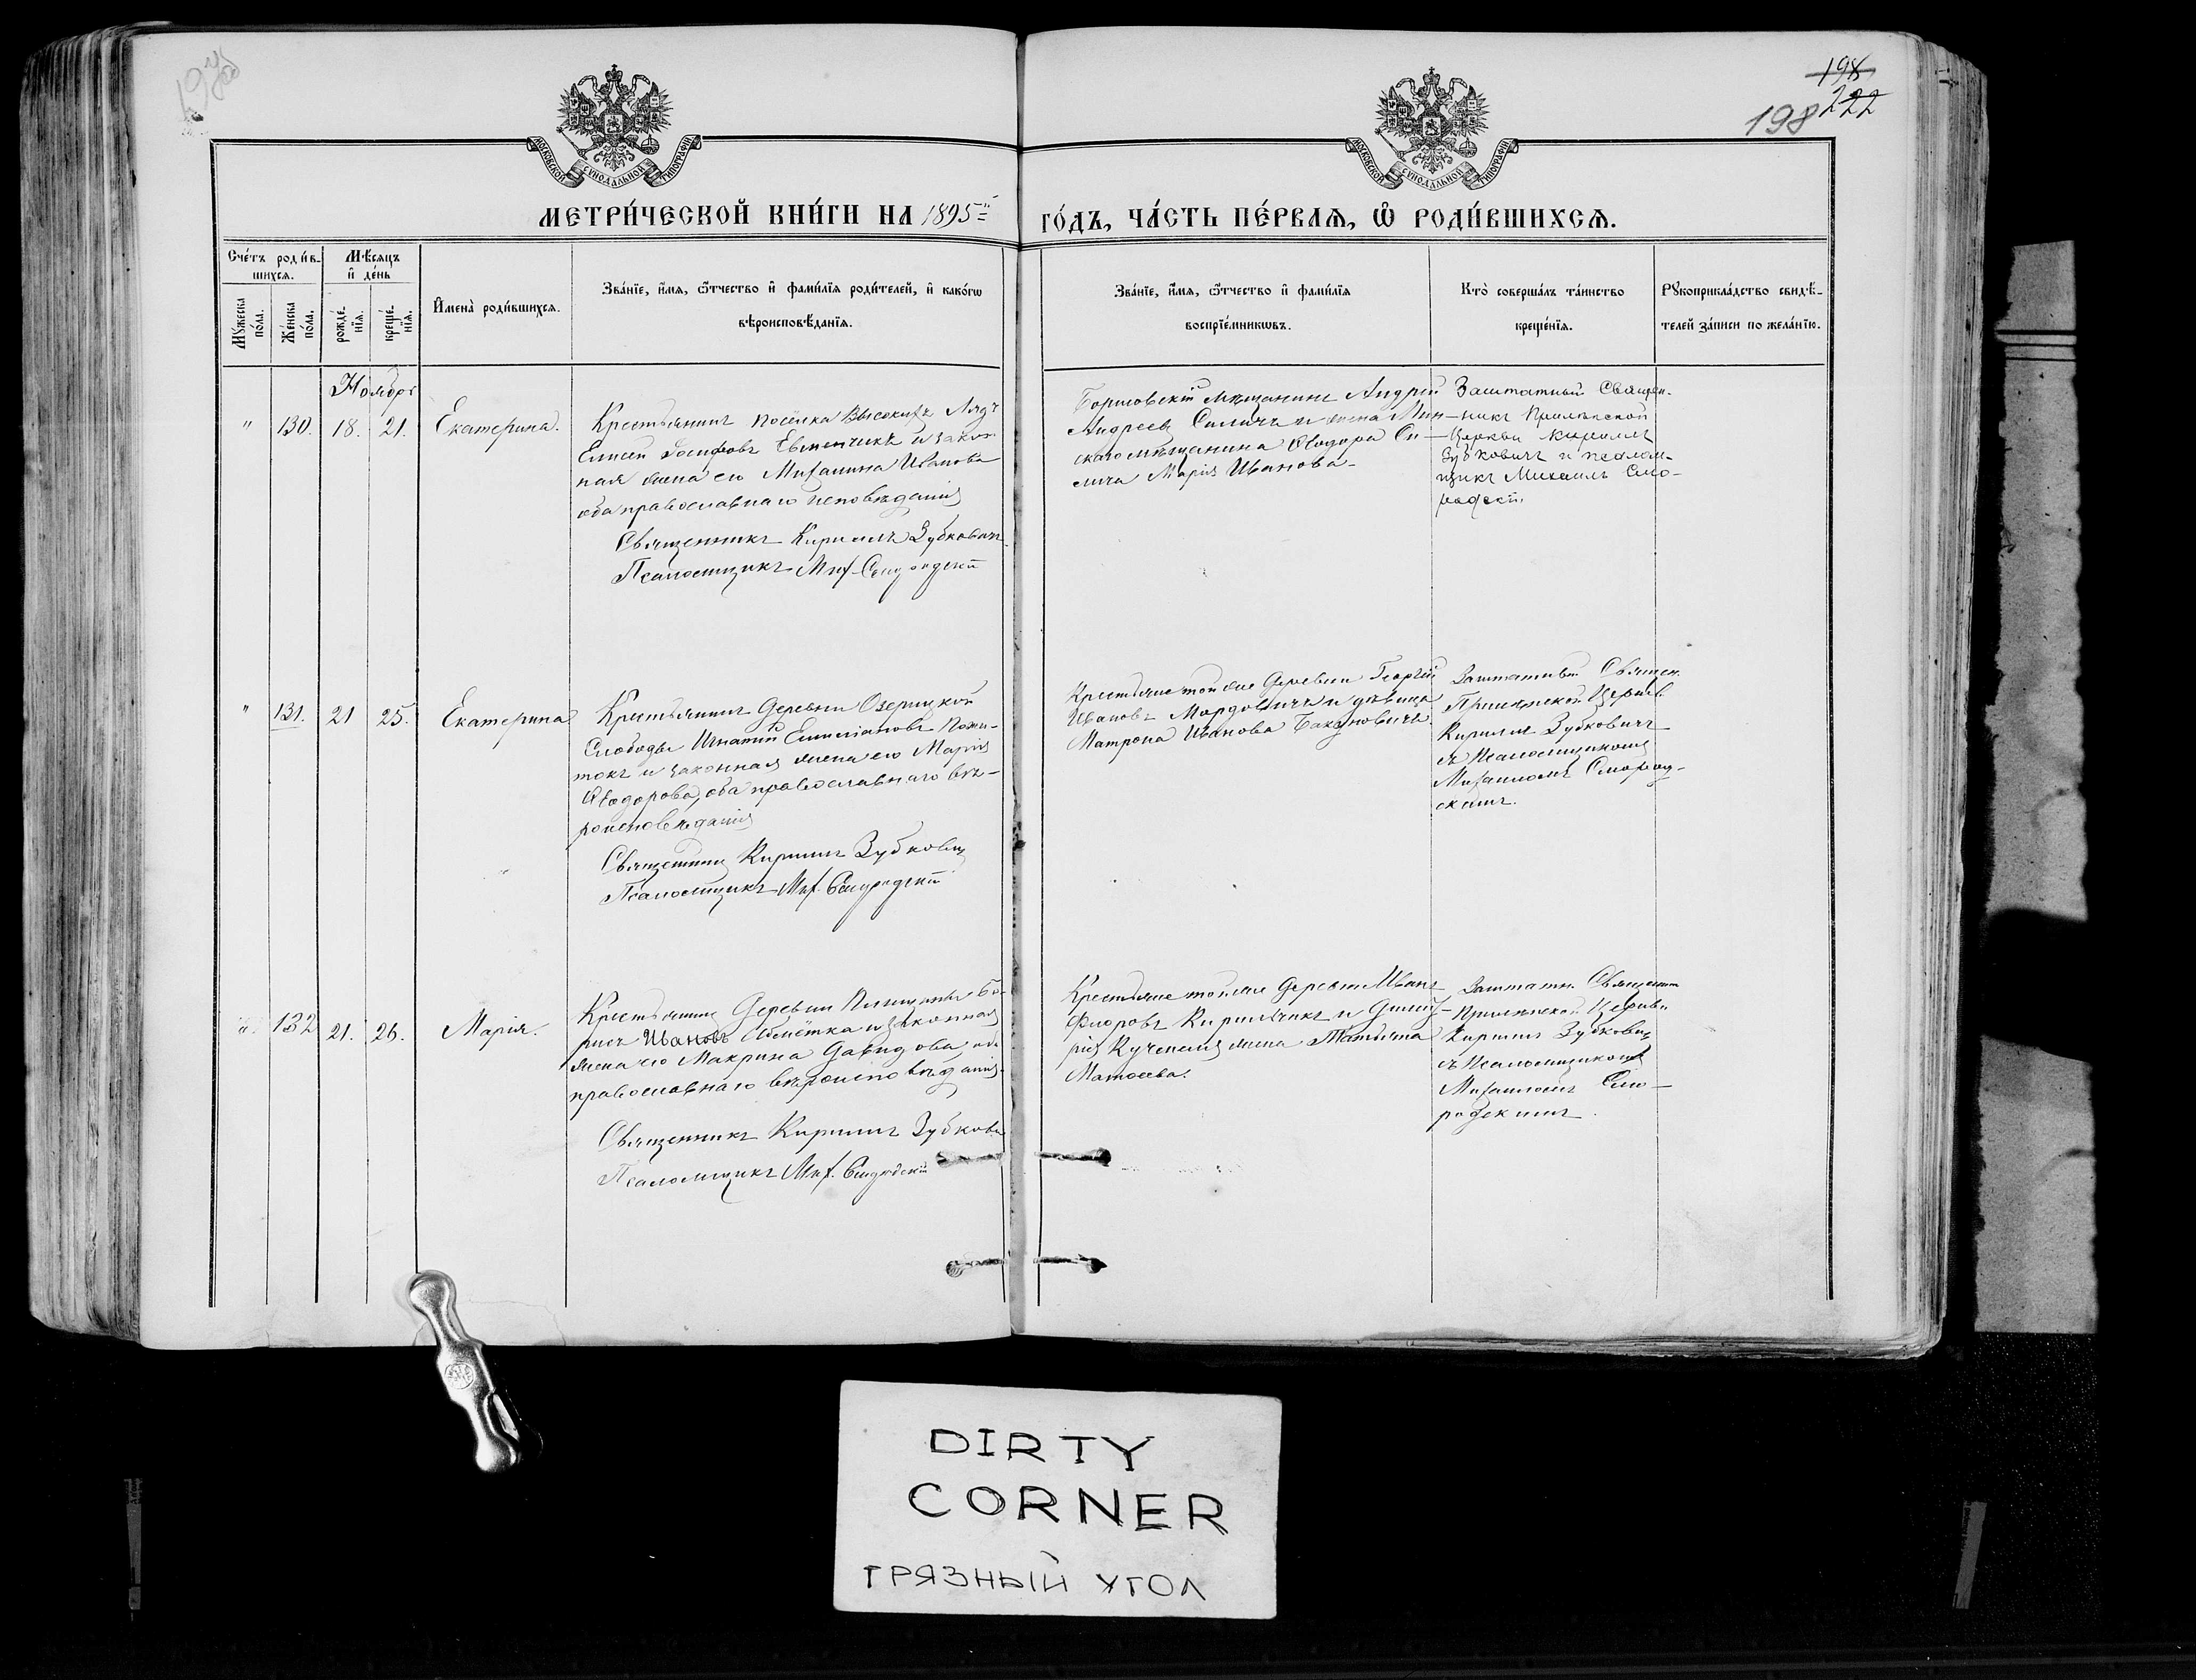 198
198
222
198
МОСКОВСКОЙ СѴНОДАЛЬНОЙ ТИПОГРАФІИ
МОСКОВСКОЙ СѴНОДАЛЬНОЙ ТИПОГРАФІИ
МЕТРИ́ЧЕСКОЙ КНИ́ГИ НА 1895
ГО́ДЪ, ЧА́СТЬ ПЕ́РВАѦ, Ѽ РОДИ́ВШИХСѦ.
Сче́тъ роди́в-
шихсѧ.
Мѣ́сѧцъ
и҆ де́нь
Мꙋ́жеска по́ла.
Же́нска по́ла.
рожде́-
нїѧ.
креще́-
нїѧ.
И҆мена̀ роди́вшихсѧ.
Зва́нїе, и҆́мѧ, ѻ҆́тчество и҆ фами́лїѧ роди́телей, и҆ како́гѡ
вѣроисповѣ́данїѧ.
Зва́нїе, и҆́мѧ, ѻ҆́тчество и҆ фами́лїѧ
воспрїе́мникѡвъ.
Кто̀ соверша́лъ та́инство
креще́нїѧ.
Рꙋкоприкла́дство свидѣ́-
телей за́писи по жела́нїю.
Ноябрь
" 130. 18. 21. Екатерина.
Крестьянинъ посёлка Высокихъ Лядъ
Елисей и закон-
ная жена его Михалина Иванова
оба православнаго исповѣданія
Священникъ Кириллъ Зубковичъ
Псаломщикъ Мих. Смородскій
Борисовскій мѣщанинъ Андрей
Андреевъ Силичъ и жена Мин-
скаго мѣщанина Ѳеодора Си-
лича Марія Иванова
Заштатный Священ-
никъ Прилѣпской
Церкви Кириллъ
Зубковичъ и псалом-
щикъ Михаилъ Смо-
родскій.
" 131. 21 25. Екатерина
Крестьянинъ деревни Озерицкой
Слободы Игнатій Емиліановъ Пожи-
токъ и законная жена его Марія
Ѳеодорова, оба православнаго вѣ-
роисповѣданія
Священникъ Кириллъ Зубковичъ
Псаломщикъ Мих. Смородскій
Крестьяне той же деревни Георгій
Ивановъ Мордовичъ и дѣвица
Матрона Иванова Бакуновичъ
Заштатный Священ.
Прилѣпской Церкви
Кириллъ Зубковичъ
съ Псаломщикомъ
Михаиломъ Смород-
скимъ.
" 132 21. 26. Марія.
Крестьянинъ деревни Бо-
рисъ Ивановъ и законная
жена его Макрина Давидова оба
православнаго вѣроисповѣданія.
Священникъ Кириллъ Зубкович
Псаломщикъ Мих. Смородскій
Крестьяне той же деревни Иванъ
Флоровъ Кирильчикъ и Дмит-
рія жена Татьяна
Матѳеева.
Заштатн. Священник
Прилѣпской Церкви
Кириллъ Зубковичъ
съ Псаломщикомъ
Михаиломъ Смо-
родскимъ.
DIRTY
CORNER
ГРЯЗНЫЙ УГОЛ